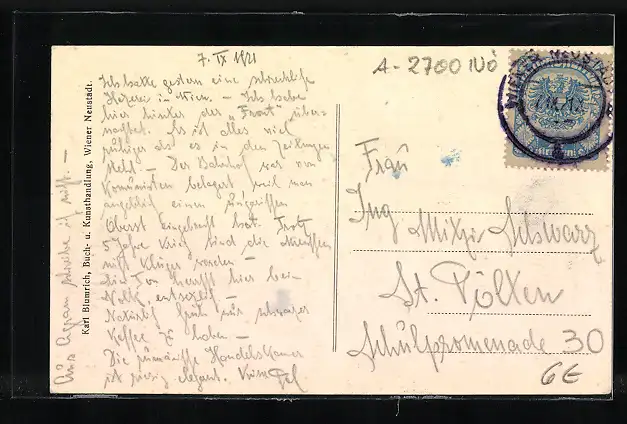 7. IX 1921
Ich hatte gestern eine schreckliche
Hetzerei in Wien. – Ich habe
hier hinter der „Front" über-
nachtet. Es ist alles viel
ruhiger als es in den Zeitungen
steht – Der Bahnhof war von
Kommunisten belagert weil man
angeblich einen ungarischen
Oberst eingebracht hat. Trotz
5 Jahre Krieg sind die Menschen
nicht klüger worden –
Ein Ton herrscht hier beim
Volk, entsetzlich –
Natürlich früh nur schwarzer
Kaffee zu haben –
Die rumänische Handelskammer
ist riesig elegant.
Aus Agram schreibe ich nicht. –
Karl Blumrich, Buch- u. Kunsthandlung, Wiener Neustadt.
A-2700 IVÖ
WIENER NEUSTADT
Frau
Ing Mitzi Schwarz
St. Pölten
Schulpromenade 30
6E